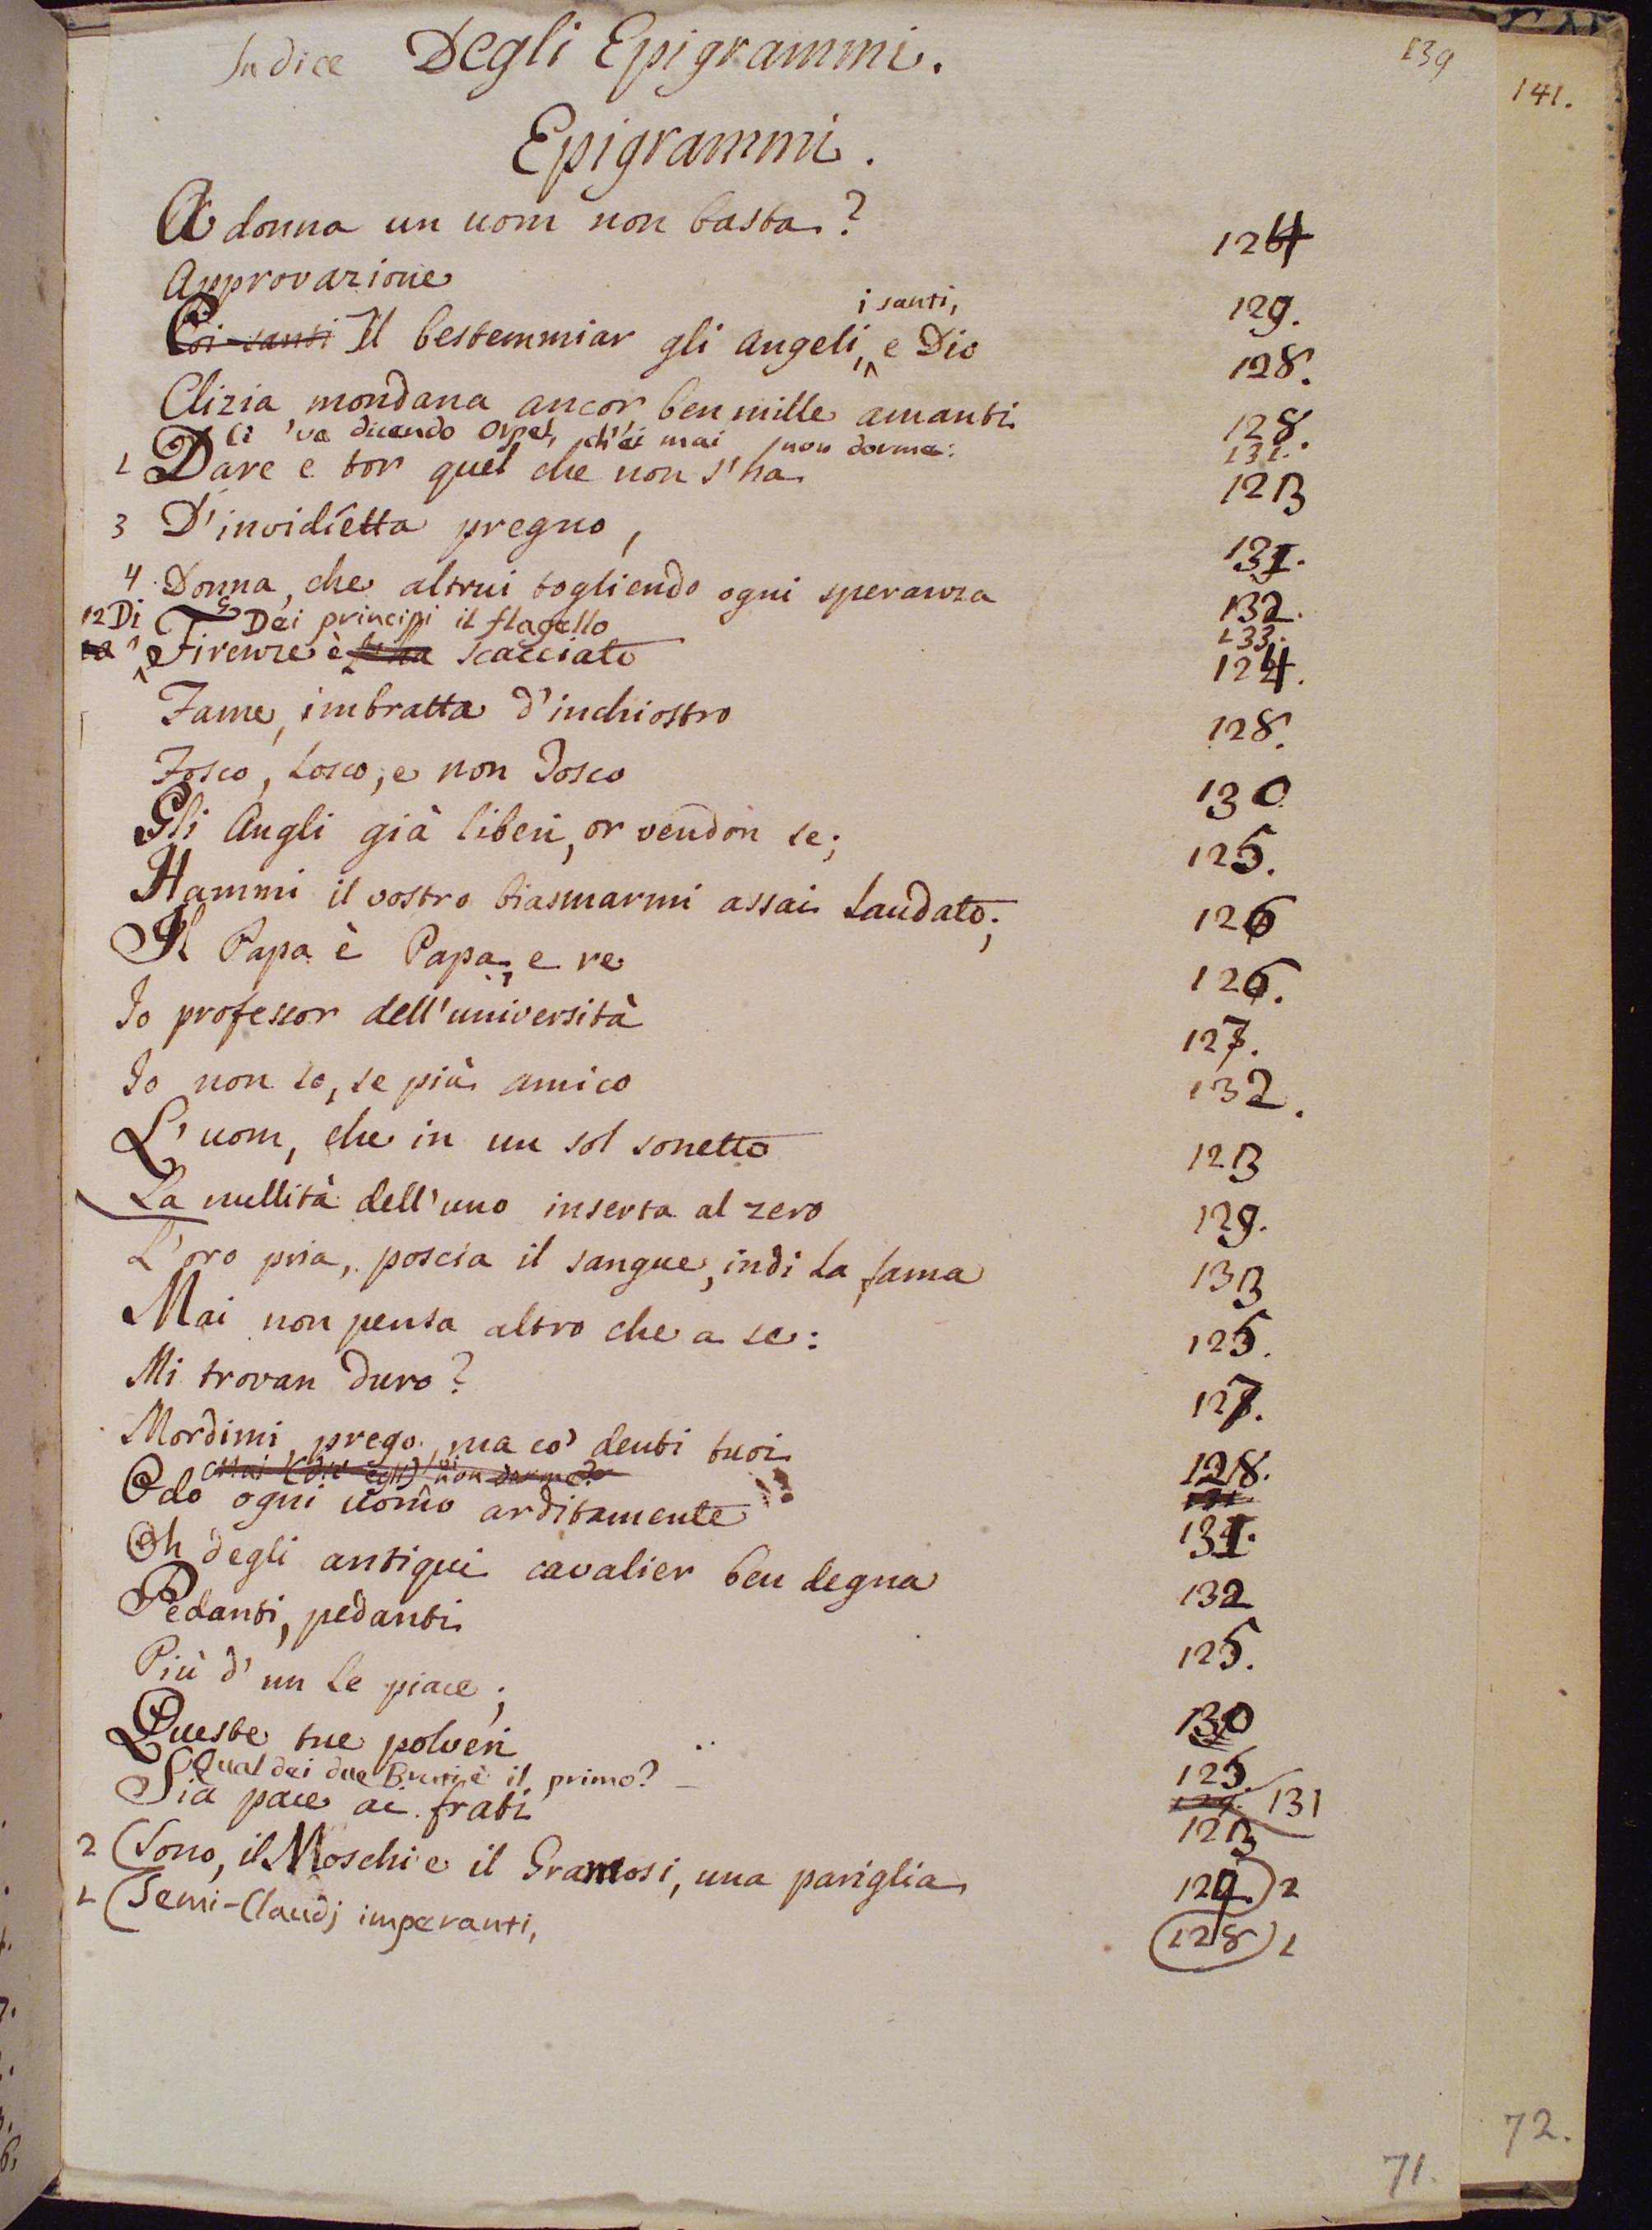 Indice Degli Epigrammi.
139
141.
Epigrammi.
A donna un uom non basta? 124
Approvazione 129.
i santi,
Co i santi Il bestemmiar gli Angeli, e Dio 128.
Clizia mondana ancor ben mille amanti 128.
Ci va dicendo ch'ei mai non dorme: 131.
1 Dare e tor quel che non s'ha 123
3 D'invidietta pregno, 131.
4 Donna, che altrui togliendo ogni speranza 132.
Dei principi il flagello 133.
12 Di Firenze è scacciato 124.
Fame, imbratta d'inchiostro 128.
Fosco, Losco, e non Tosco 130
Gli Angli già liberi, or vendon se; 125.
Hammi il vostro biasmarmi assai laudato; 126
Il Papa è Papa, e re 126.
Io professor dell'università 127.
Io non so, se più amico 132.
L'uom, che in un sol sonetto 123
La nullità dell'uno inserta al zero 129.
L'oro pria, poscia il sangue, indi la fama 133
Mai non pensa altro che a se: 125.
Mi trovan duro? 127.
Mordimi, prego, ma co' denti tuoi 128.
non dorme?
Odo ogni uomo arditamente 131.
Oh degli antiqui cavalier ben degna 132
Pedanti, pedanti 125.
Più d'un le piace; 130
Queste tue polveri 125.
Qual dei due Bruti è il primo? 131
Sia pace ai frati 123
2 (Sono, il Moschi e il Gramosi, una pariglia 129.) 2
1 (Semi-Claudj imperanti, 128) 1
71.
72.